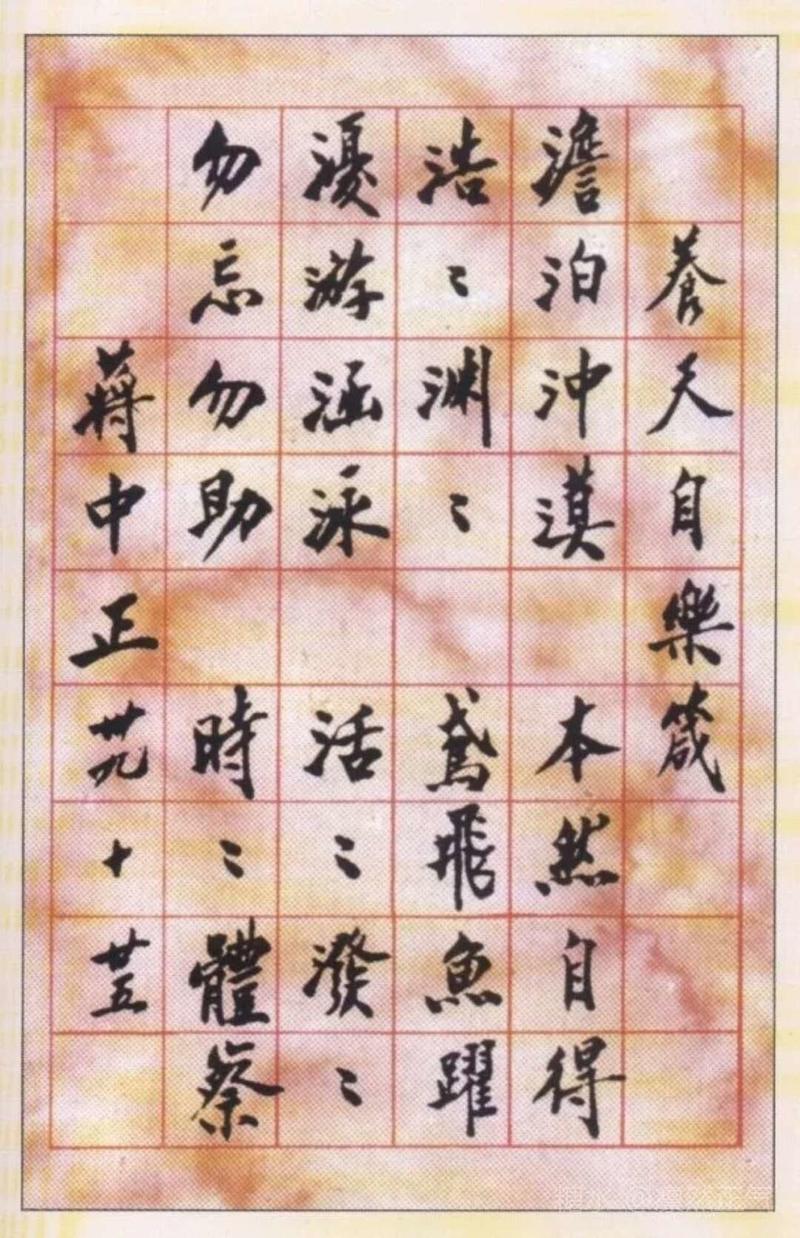 養天自樂箴
澹泊沖漠 本然自得
浩〻淵〻 鳶飛魚躍
瀀游涵泳 活〻潑〻
勿忘勿助 時〻體察
蔣中正 卅九 十 廿五